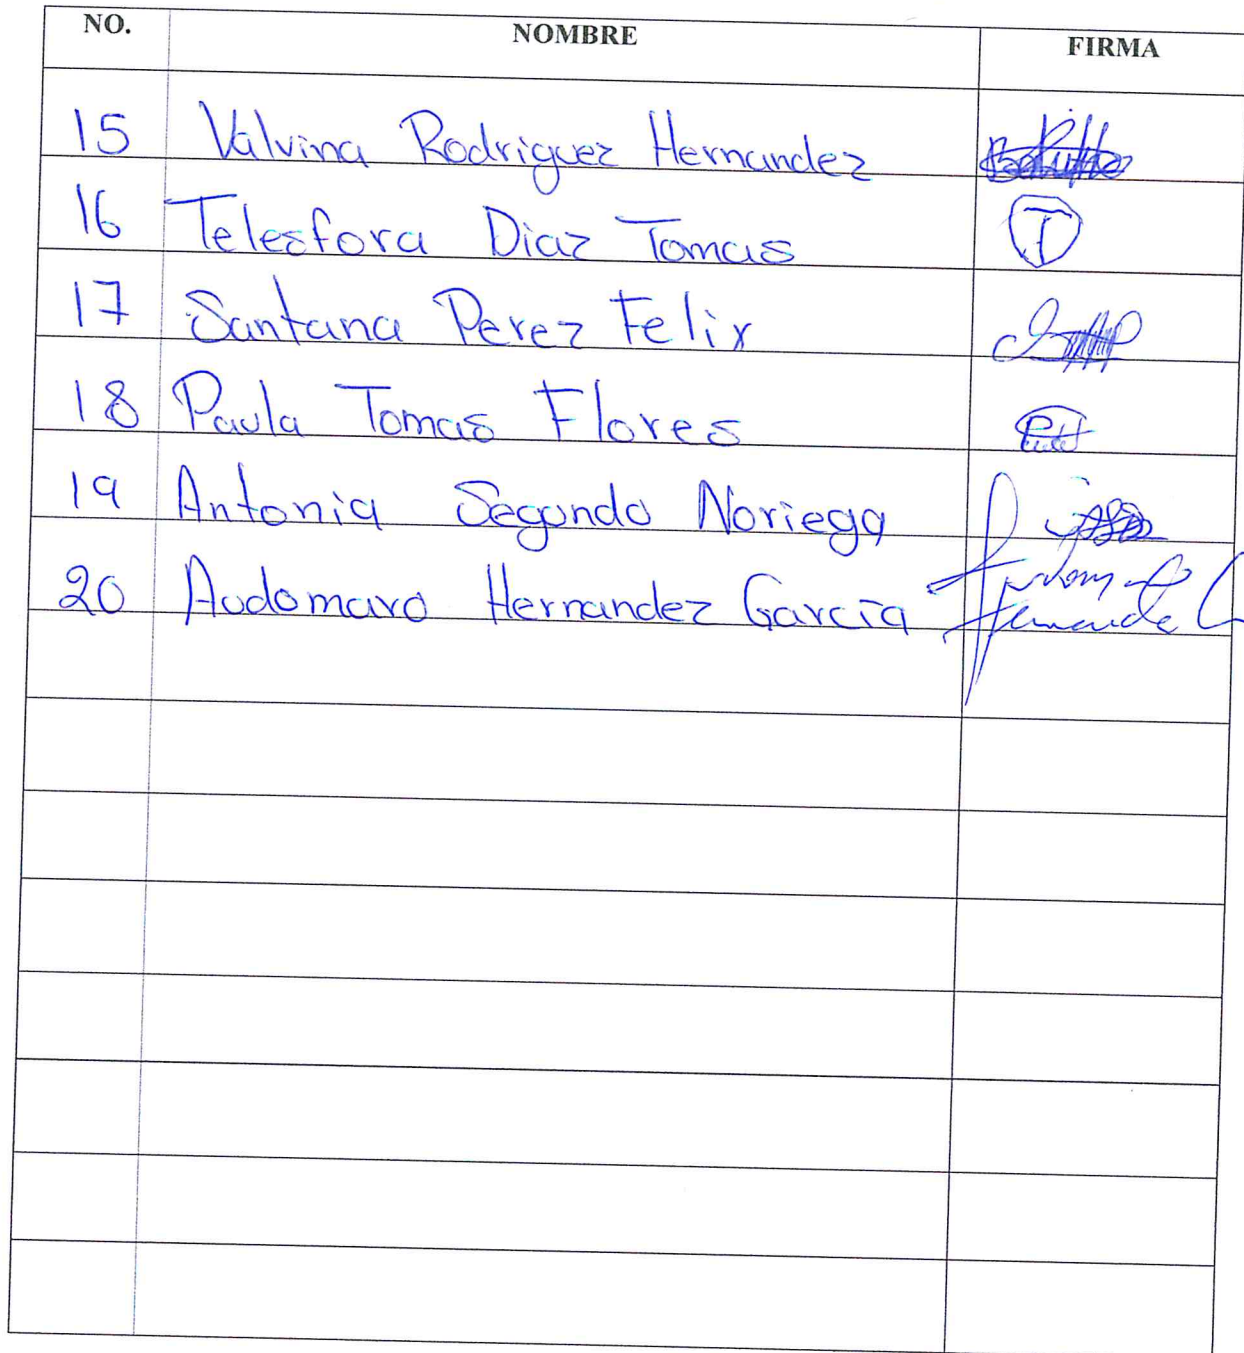 NO. NOMBRE FIRMA
15 Valvina Rodriguez Hernandez
16 Telesfora Diaz Tomas T
17 Santana Perez Felix
18 Paula Tomas Flores
19 Antonia Segundo Noriega
20 Audomaro Hernandez García